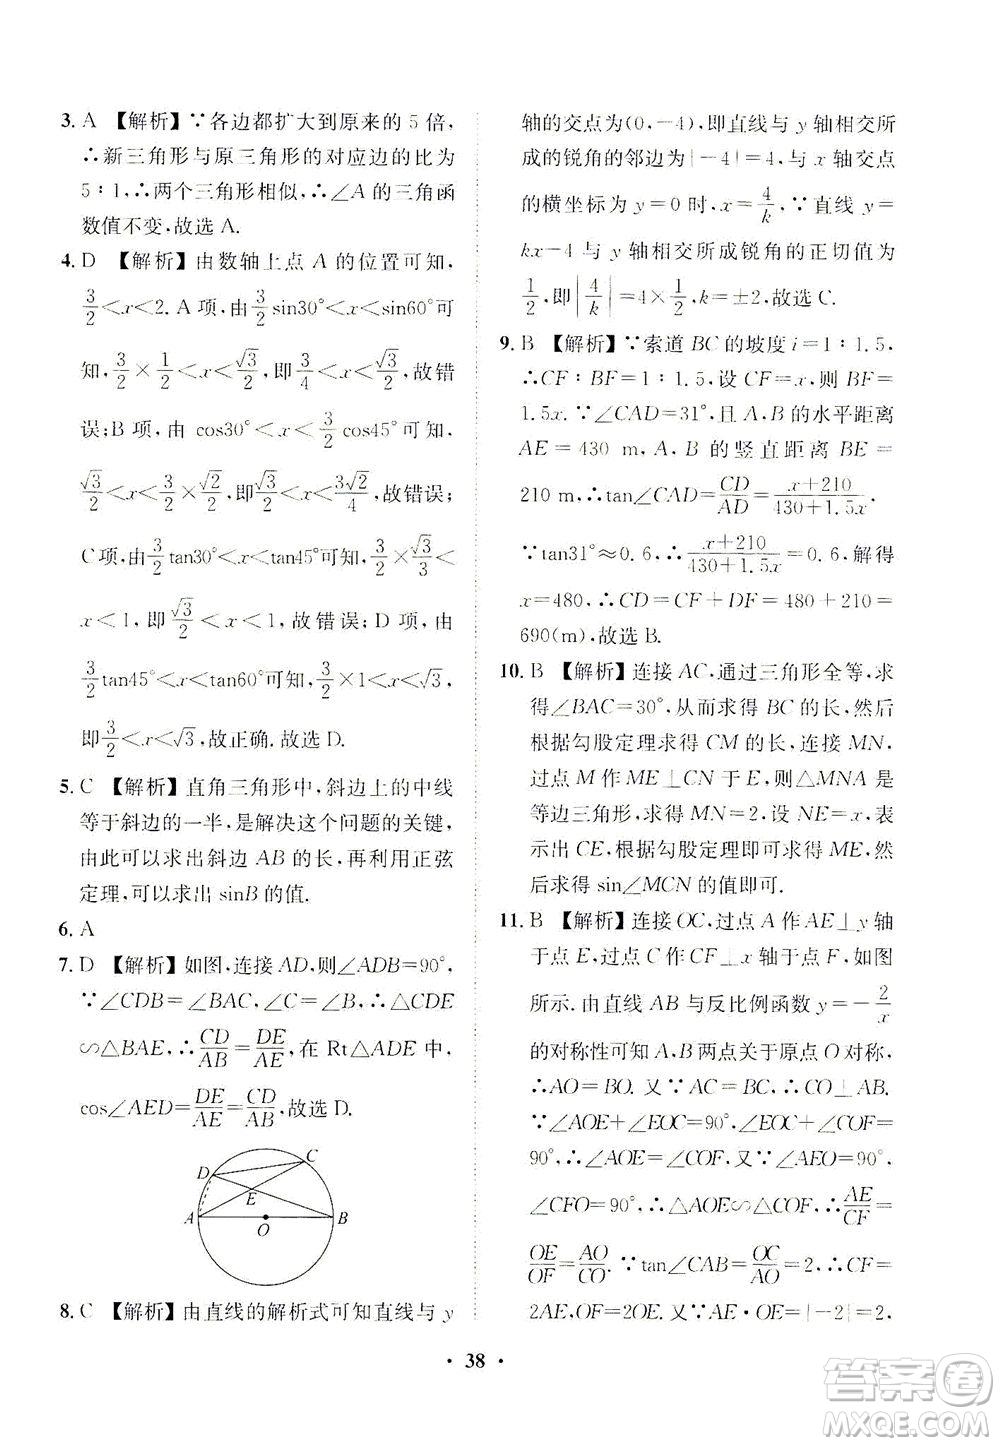 3. A 【解析】∵各边都扩大到原来的 5 倍,
∴新三角形与原三角形的对应边的比为
5∶1,∴两个三角形相似,∴∠A 的三角函
数值不变,故选 A.
4. D 【解析】由数轴上点 A 的位置可知,
3/2<x<2. A 项,由 3/2 sin30°<x<sin60°可
知, 3/2×1/2<x<√3/2,即 3/4<x<√3/2,故错
误;B 项,由 cos30°<x<3/2 cos45°可知,
√3/2<x<3/2×√2/2,即√3/2<x<3√2/4,故错误;
C 项,由 3/2 tan30°<x<tan45°可知, 3/2×√3/3
<x<1,即√3/2<x<1,故错误;D 项,由
3/2 tan45°<x<tan60°可知, 3/2×1<x<√3,
即 3/2<x<√3,故正确. 故选 D.
5. C 【解析】直角三角形中,斜边上的中线
等于斜边的一半,是解决这个问题的关键,
由此可以求出斜边 AB 的长,再利用正弦
定理,可以求出 sinB 的值.
6. A
7. D 【解析】如图,连接 AD,则∠ADB=90°,
∵∠CDB=∠BAC,∠C=∠B,∴△CDE
∽△BAE,∴CD/AB=DE/AE,在 Rt△ADE 中,
cos∠AED=DE/AE=CD/AB,故选 D.
D
C
E
A
O
B
8. C 【解析】由直线的解析式可知直线与 y
轴的交点为(0,-4),即直线与 y 轴相交所
成的锐角的邻边为|-4|=4,与 x 轴交点
的横坐标为 y=0 时,x=4/k,∵直线 y=
kx-4 与 y 轴相交所成锐角的正切值为
1/2,即|4/k|=4×1/2,k=±2,故选 C.
9. B 【解析】∵索道 BC 的坡度 i=1∶1.5,
∴CF∶BF=1∶1.5,设 CF=x,则 BF=
1.5x. ∵∠CAD=31°,且 A,B 的水平距离
AE=430 m,A,B 的竖直距离 BE=
210 m,∴tan∠CAD=CD/AD=(x+210)/(430+1.5x).
∵tan31°≈0.6,∴(x+210)/(430+1.5x)=0.6,解得
x=480,∴CD=CF+DF=480+210=
690(m),故选 B.
10. B 【解析】连接 AC,通过三角形全等,求
得∠BAC=30°,从而求得 BC 的长,然后
根据勾股定理求得 CM 的长,连接 MN,
过点 M 作 ME⊥CN 于 E,则△MNA 是
等边三角形,求得 MN=2,设 NE=x,表
示出 CE,根据勾股定理即可求得 ME,然
后求得 sin∠MCN 的值即可.
11. B 【解析】连接 OC,过点 A 作 AE⊥y 轴
于点 E,过点 C 作 CF⊥x 轴于点 F,如图
所示. 由直线 AB 与反比例函数 y=-2/x
的对称性可知 A,B 两点关于原点 O 对称,
∴AO=BO. 又∵AC=BC,∴CO⊥AB.
∵∠AOE+∠EOC=90°,∠EOC+∠COF=
90°,∴∠AOE=∠COF,又∵∠AEO=90°,
∠CFO=90°,∴△AOE∽△COF,∴AE/CF=
OE/OF=AO/CO. ∵tan∠CAB=OC/AO=2,∴CF=
2AE,OF=2OE. 又∵AE·OE=|-2|=2,
· 38 ·
答案圈
MXQE.COM